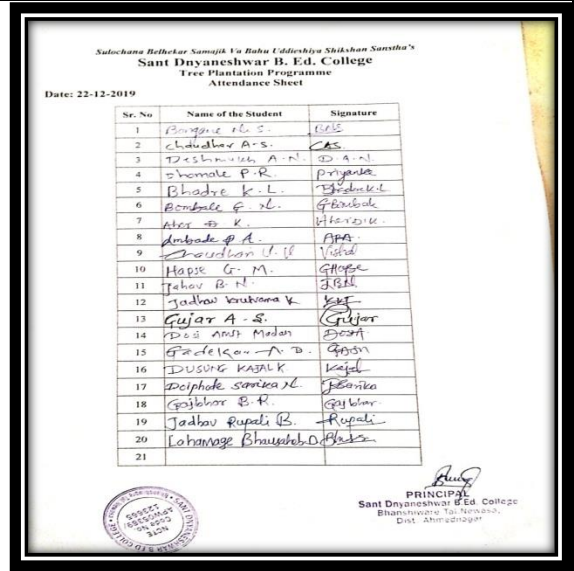 Sulochana Belhekar Samajik Va Bahu Uddieshiya Shikshan Sanstha's
Sant Dnyaneshwar B. Ed. College
Tree Plantation Programme
Attendance Sheet
Date: 22-12-2019
Sr. No Name of the Student Signature
1 M. S. BNS
2 Chaudhar A-S. CAS
3 Deshmukh A-N. D-A-N.
4 P.R. Priyanka
5 Bhadre K.L. Bhadre K.L
6 Bombale G. N. GBombale
7 K.
8 Ambade P A. APA.
9 Vishal
10 Hapse G. M. GHapse
11 B. N. JBN
12 Jadhav K
13 Gujar A-S. Gujar
14 Dos Amit Madan
15 Gadekar A. D.
16 DUSUNG KAJAL K Kajal
17 Doiphode Sarika N. Sarika
18 Gajbhar B.R. Gajbhar.
19 Jadhav Rupali B. Rupali
20 Lohamage Bhausaheb D.
21
PRINCIPAL
Sant Dnyaneshwar B.Ed. College
Bhanshiware Tal.Newasa,
Dist. Ahmednagar
SANT DNYANESHWAR B.ED COLLEGE
NCTE
Code No.
123665